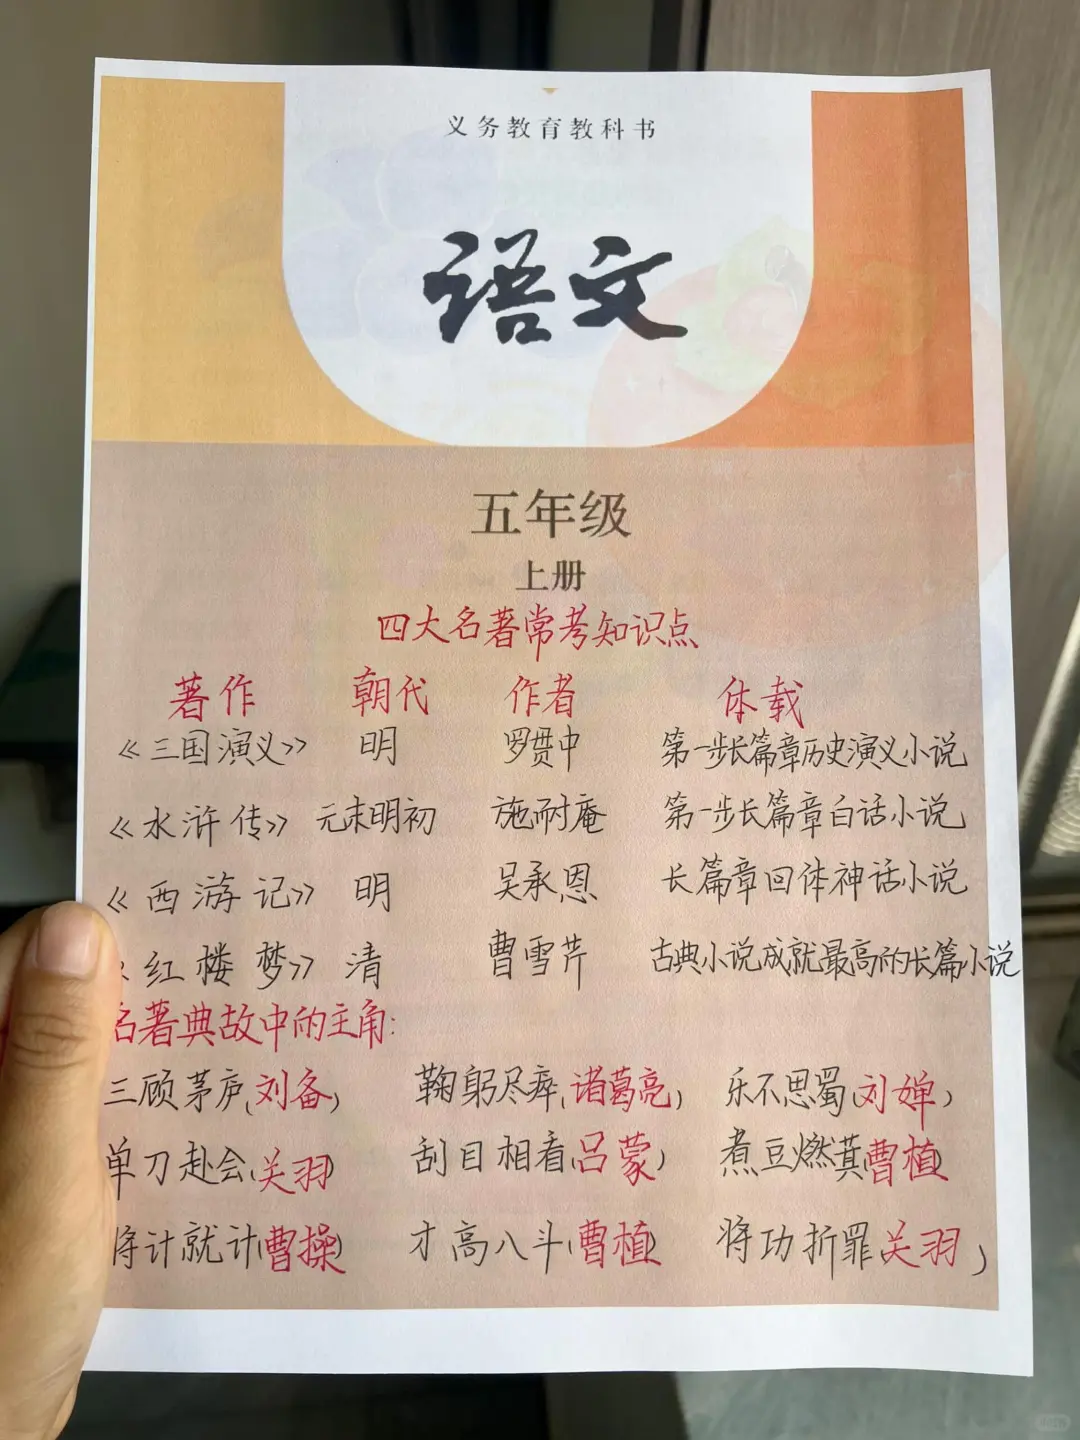 义务教育教科书
语文
五年级
上册
四大名著常考知识点
著作 朝代 作者 体载
《三国演义》 明 罗贯中 第一步长篇章历史演义小说
《水浒传》 元末明初 施耐庵 第一步长篇章白话小说
《西游记》 明 吴承恩 长篇章回体神话小说
《红楼梦》 清 曹雪芹 古典小说成就最高的长篇小说
名著典故中的主角:
三顾茅庐(刘备) 鞠躬尽瘁(诸葛亮) 乐不思蜀(刘婵)
单刀赴会(关羽) 刮目相看(吕蒙) 煮豆燃萁(曹植)
将计就计(曹操) 才高八斗(曹植) 将功折罪(关羽)